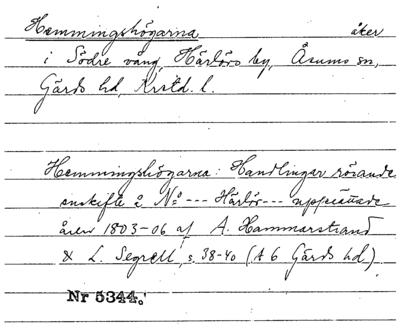 Hemmingshögarna åker
i Södre vång, Härlövs by, Åsums sn,
Gärds hd, Krstd. l.
Hemmingshögarna: Handlingar rörande
enskifte å No --- Härlöv --- upprättade
åren 1803-06 af A. Hammarstrand
& L. Segrell, s. 38-40 (A 6 Gärds hd.)
Nr 5344.